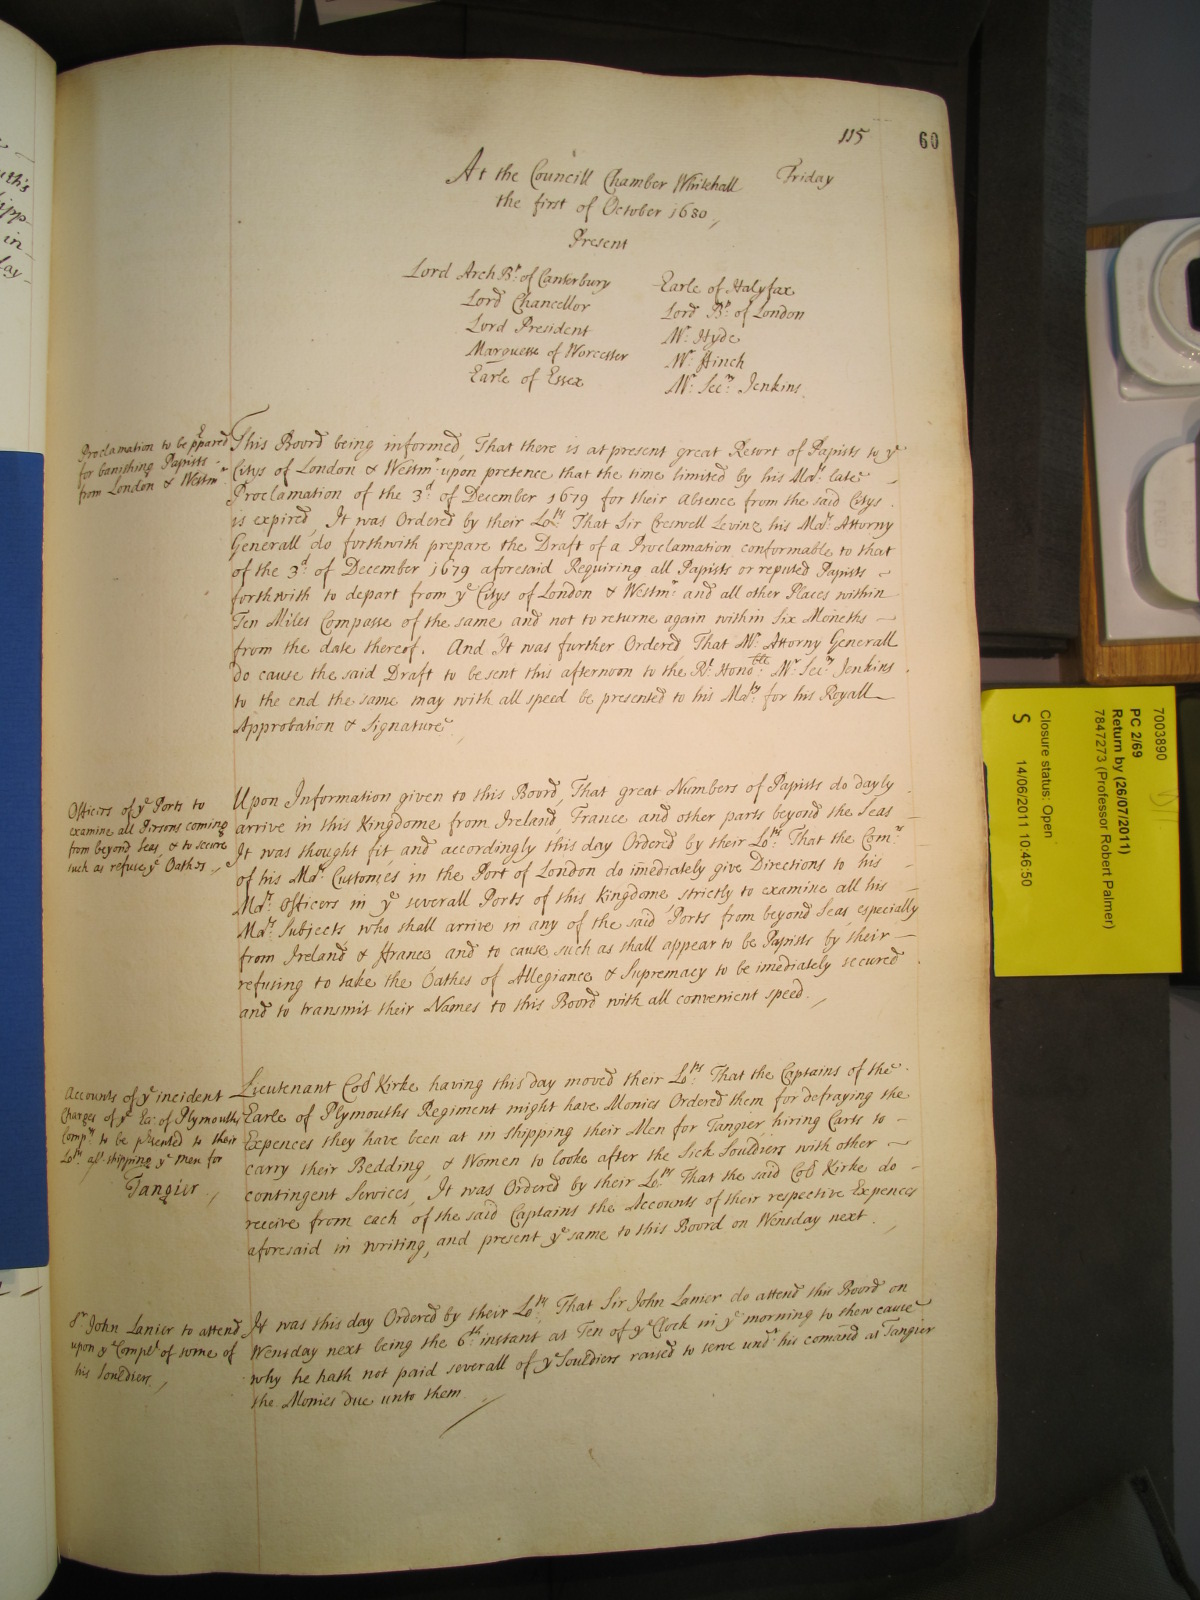 115 60
At the Councill Chamber Whitehall Friday
the first of October 1680,
Present
Lord Arch Bp. of Canterbury
Lord Chancellor
Lord President
Marquesse of Worcester
Earle of Essex
Earle of Halyfax
Lord Bp. of London
Mr. Hyde
Mr. Finch
Mr. Secry. Jenkins
Proclamation to be ppared
for banishing Papists
from London & Westmr
This Boord being informed, That there is at present great Resort of Papists to ye
Citys of London & Westmr. upon pretence that the time limited by his Mats. late
Proclamation of the 3d. of December 1679 for their Absence from the said Citys
is expired, It was Ordered by their Lopps. That Sir Creswell Levinz his Mats. Attorny
Generall do forthwith prepare the Draft of a Proclamation conformable to that
of the 3d. of December 1679 aforesaid Requiring all Papists or reputed Papists
forthwith to depart from ye Citys of London & Westmr. and all other Places within
Ten Miles Compasse of the same and not to returne again within Six Moneths
from the date thereof. And It was further Ordered That Mr. Attorny Generall
do cause the said Draft to be sent this afternoon to the Rt. Honoble. Mr. Secry. Jenkins
to the end the same may with all speed be presented to his Maty. for his Royall
Approbation & Signature,
Officers of ye Ports to
examine all Persons coming
from beyond Seas, & to secure
such as refuse ye Oathes,
Upon Information given to this Boord, That great Numbers of Papists do dayly
arrive in this Kingdome from Ireland, France and other parts beyond the Seas
It was thought fit, and accordingly this day Ordered by their Lopps. That the Comrs.
of his Mats. Customes in the Port of London do imediately give Directions to his
Mats. Officers in ye severall Ports of this Kingdome strictly to examine all his
Mats. Subjects who shall arrive in any of the said Ports from beyond Seas, especially
from Ireland & France and to cause such as shall appear to be Papists by their
refusing to take the Oathes of Allegiance & Supremacy to be imediately secured
and to transmit their Names to this Boord with all convenient speed.,
Accounts of ye incident
Charges of ye Ea: of Plymouths
Compns. to be psented to their
Lopps. abt. shipping ye men for
Tangier,
Lieutenant Coll Kirke having this day moved their Lopps. That the Captains of the
Earle of Plymouths Regiment might have Monies Ordered them for defraying the
Expences they have been at in shipping their Men for Tangier, hiring Carts to
carry their Bedding, & Women to looke after the Sick Souldiers with other
contingent Services, It was Ordered by their Lopps. That the said Coll Kirke do
receive from each of the said Captains the Accounts of their respective Expences
aforesaid in writing, and present ye same to this Boord on Wensday next.,
Sr. John Lanier to attend
upon ye Complt. of some of
his Souldiers,
It was this day Ordered by their Lopps. That Sir John Lanier do attend this Boord on
Wensday next being the 6th instant at Ten of ye Clock in ye morning to shew cause
why he hath not paid severall of ye Souldiers raised to serve undr. his comand at Tangier
the Monies due unto them.
7003890
PC 2/69
Return by (26/07/2011)
7847273 (Professor Robert Palmer)
Closure status: Open
S 14/06/2011 10:46:50